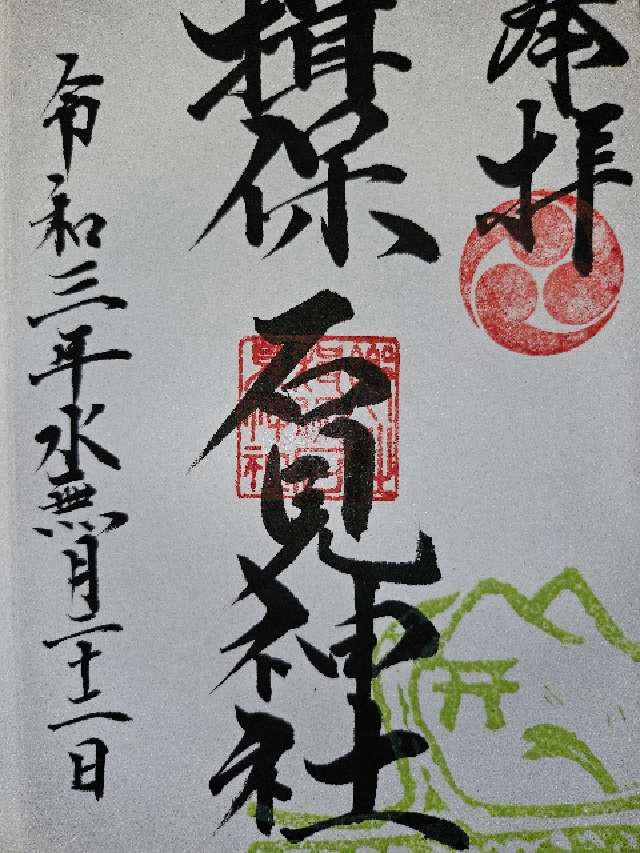 奉拝
揖保石見神社
令和三年水無月二十二日